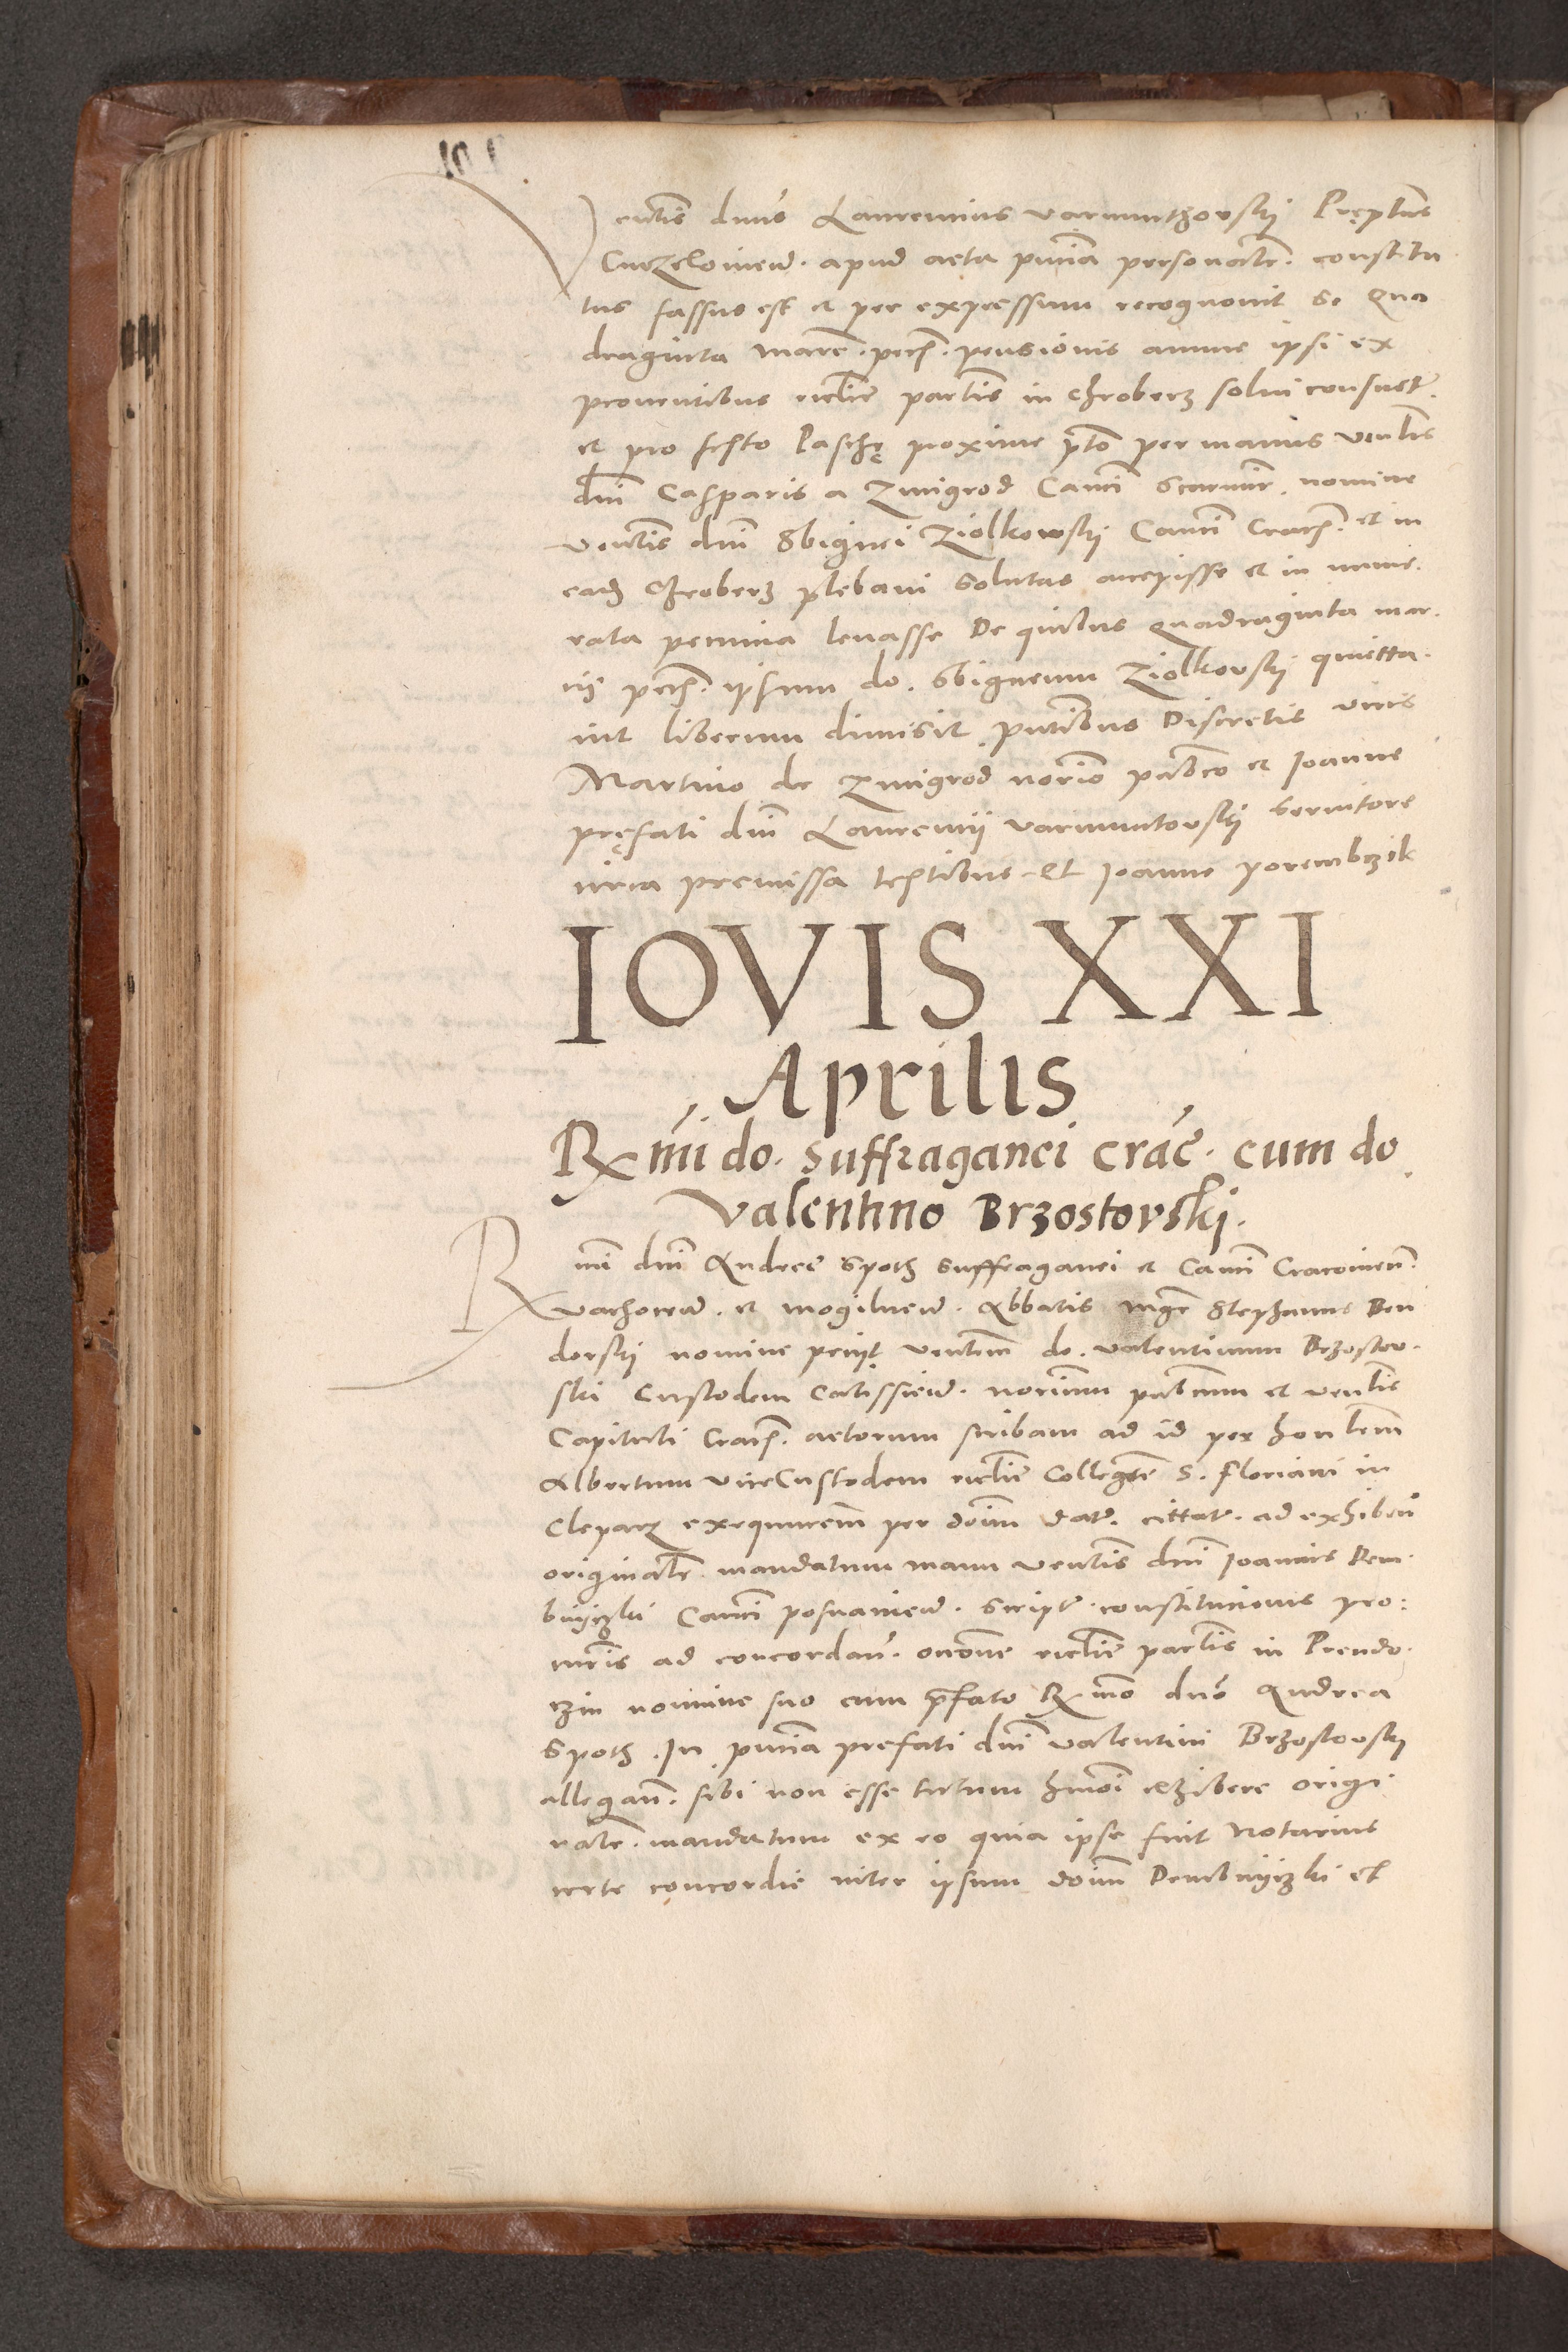 Ventis dnus Laurentius varmunthovskij Pręptus
Curzelovien. apud acta pntia personalr. constitu
tus fassus est et per expressum recognovit se qua
draginta marc. pecs. pensionis annue ipsi ex
proventibus ecclie partis in Chroberz solvi consuet.
et pro festo Paschę proxime prto per manus venlis
dni Casparis a Zmigrod Canci Scarmir. nomine
ventis dni Sbignei Ziolkowskij Canci Cracs. et in
eadz Chroberz plebani solutas accepisse et in nume.
rata pecunia levasse De quibus quadraginta mar.
cis pecs. ipsum do. Sbigneum Ziolkovskij quietta.
vit liberum dimisit. pntibus Discretis viris
Martino de Zmigrod norio pubco et Joanne
pręfati dni Laurentij varmuntovskij servitore
circa premissa testibus. Et Joanne porembczik
IOVIS XXI
Aprilis
Rxmi do. suffraganei crac. cum do
valentino Brzostovski.
Rmi dni Andree Spoth suffraganei et Canci Cracovien.
vachocen. et mogilnen. Abbatis mgr Stephanus Ben
dorskij nomine petijt ventem do. valentinum Brzostov.
ski Custodem calissien. norium pubcum et venlis
Capituli Cracs. actorum scribam ad id per honlem
Albertum viceCustodem ecclie Collegte S. Floriani in
Clepars exequutem per doim dat. cittat. ad exhiben
originale. mandatum manu ventis dni Joannis Dem.
bnijczki Canci posnanien. script. constitucionis pro:
curis ad concordan. occone ecclie parlis in Prendo.
czin nomine suo cum prfato Rxmo dno Andrea
Spoth. In pntia prefati dni valentini Brzostovskij
allegan. sibi non esse tutum hmoi exhibere origi
nale. mandatum ex eo quia ipse fuit Notarius
certe concordie inter ipsum doim Dembnijczki et